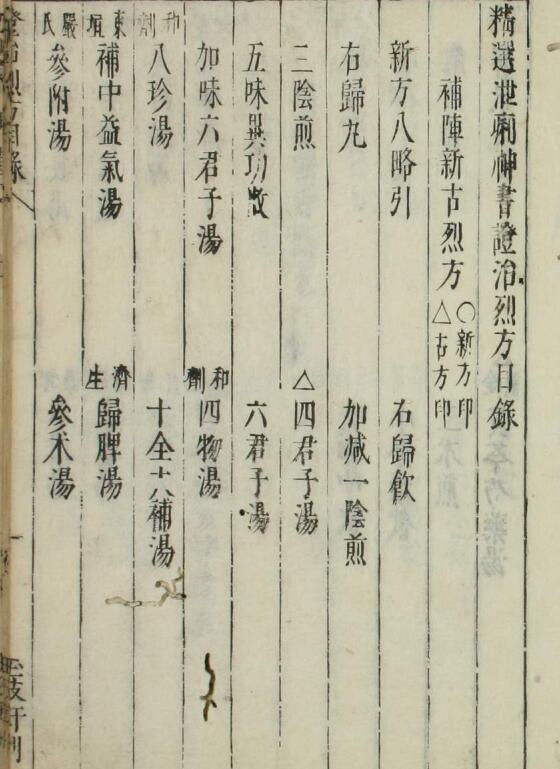 精選泄痢神書證治烈方目錄
補陣新古烈方 ○新方印 △古方印
新方八略引 右歸飲
右歸丸 加減一陰煎
三陰煎 △四君子湯
五味異功散 六君子湯
加味六君子湯 和劑 四物湯
和劑 八珍湯 十全大補湯
東垣 補中益氣湯 濟生 歸脾湯
嚴氏 參附湯 參朮湯